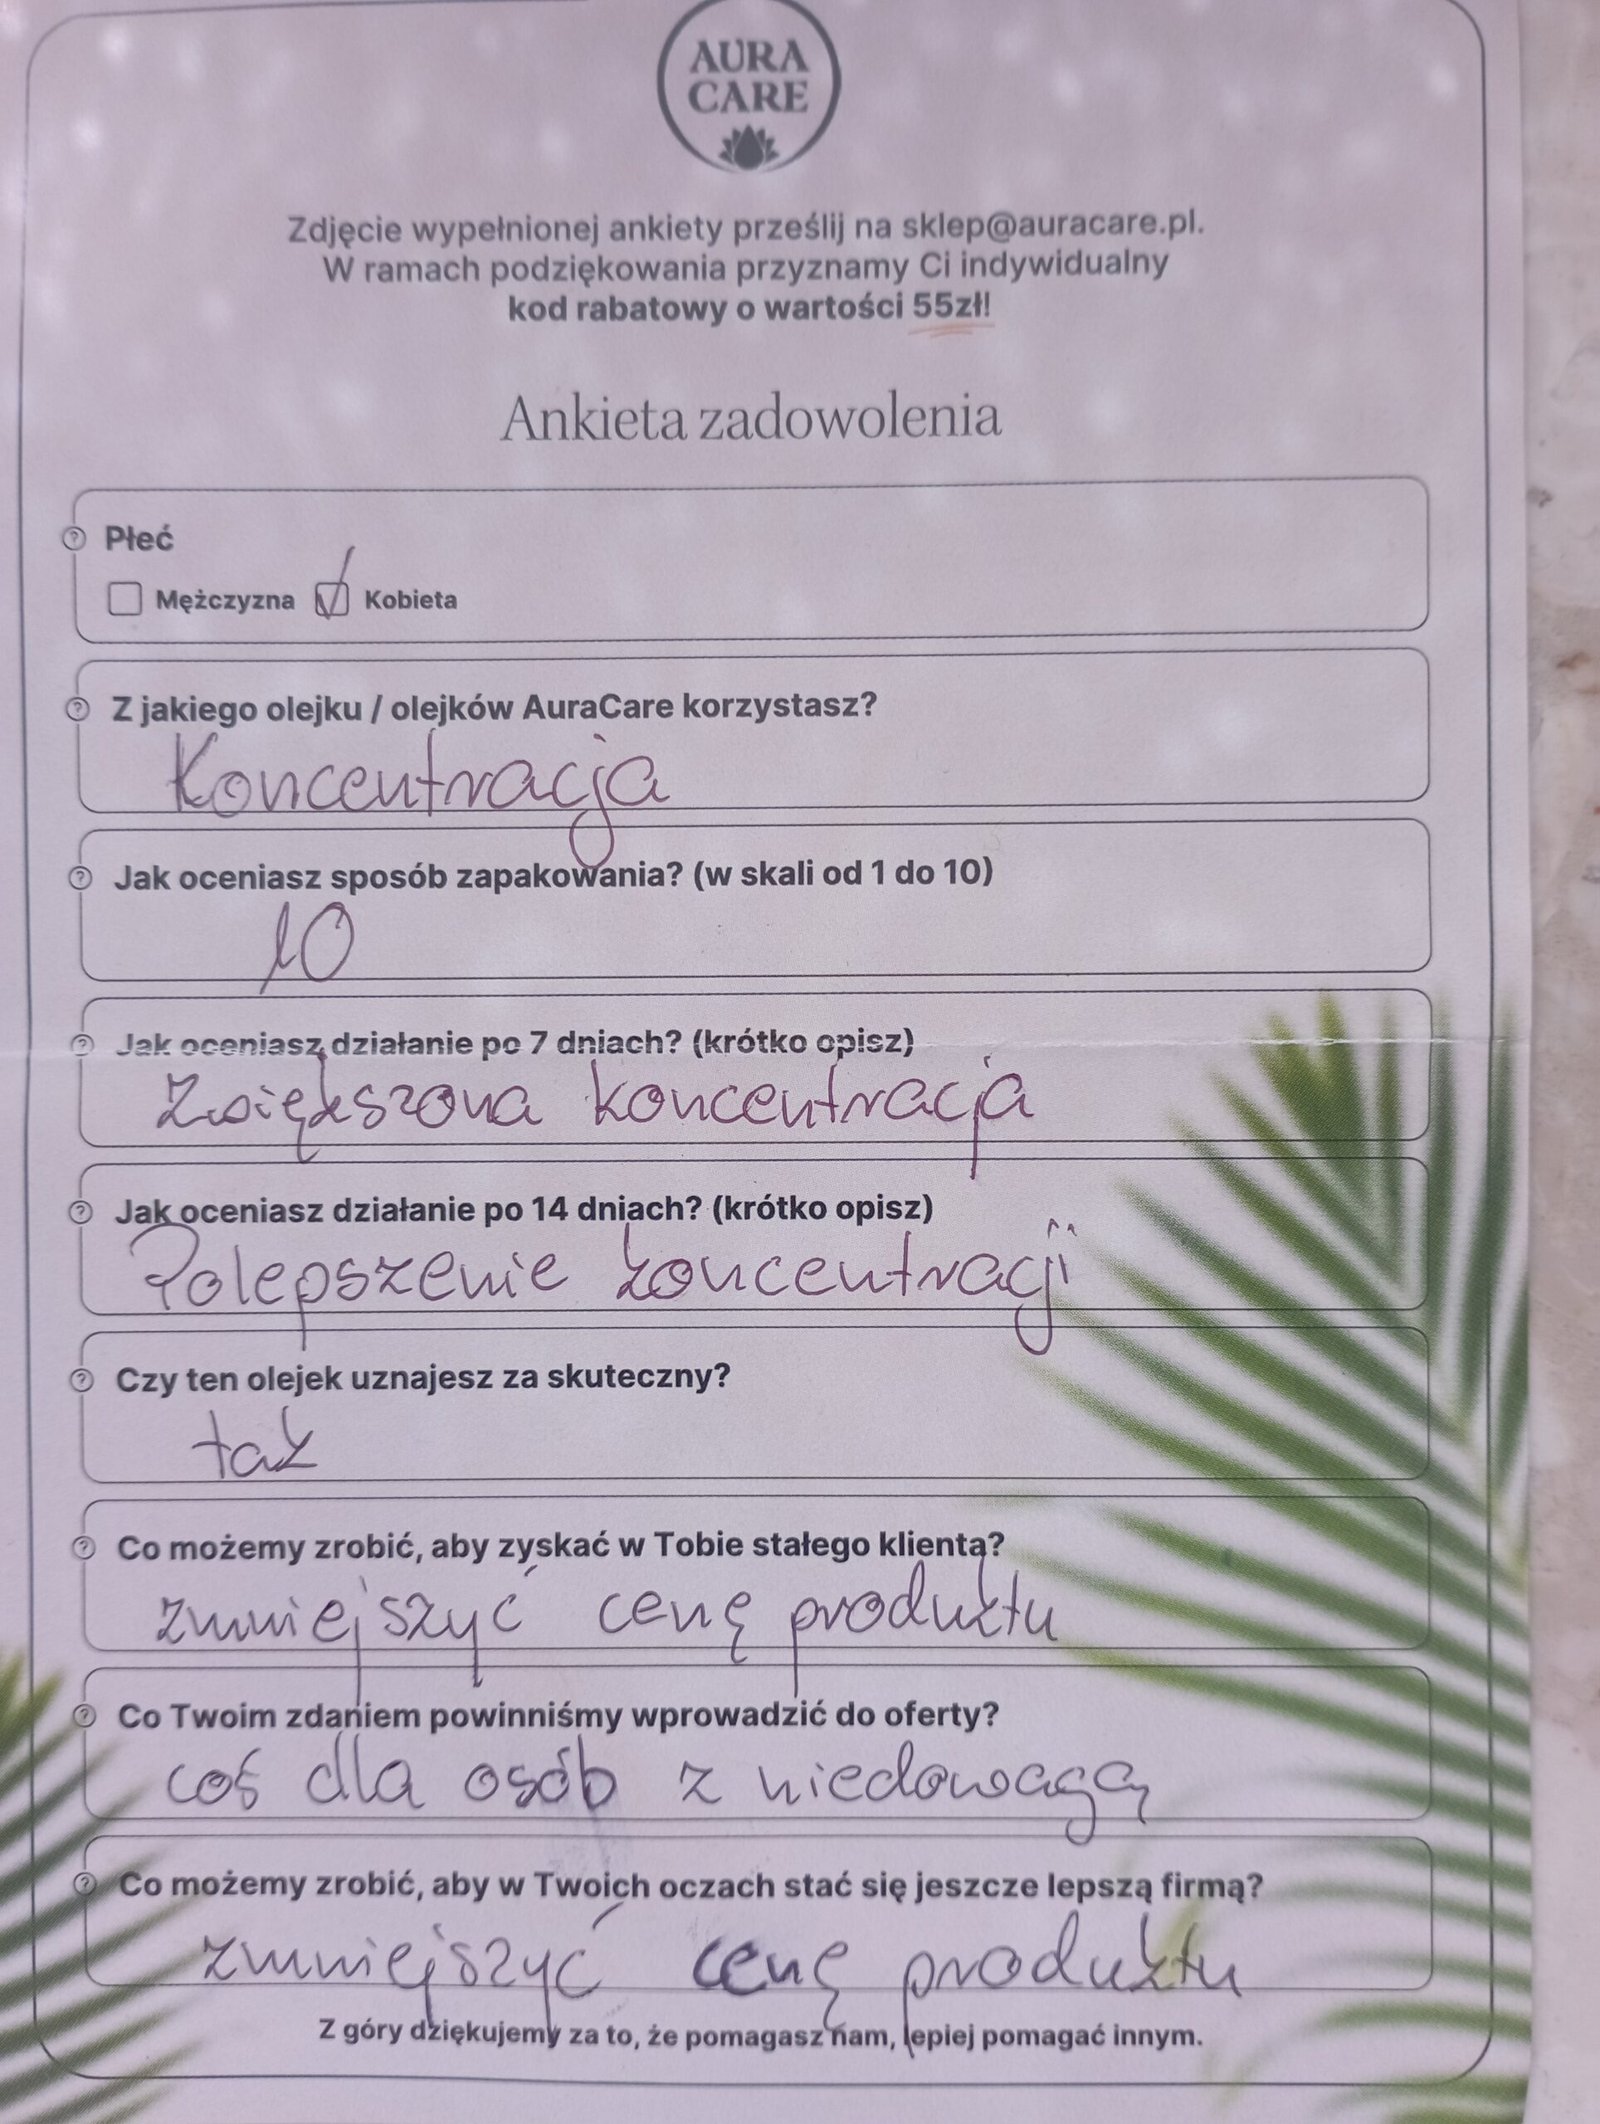 AURA
CARE
Zdjęcie wypełnionej ankiety prześlij na sklep@auracare.pl.
W ramach podziękowania przyznamy Ci indywidualny
kod rabatowy o wartości 55zł!
Ankieta zadowolenia
Płeć
Mężczyzna Kobieta
Z jakiego olejku / olejków AuraCare korzystasz?
Koncentracja
Jak oceniasz sposób zapakowania? (w skali od 1 do 10)
10
Jak oceniasz działanie po 7 dniach? (krótko opisz)
Zwiększona koncentracja
Jak oceniasz działanie po 14 dniach? (krótko opisz)
Polepszenie koncentracji
Czy ten olejek uznajesz za skuteczny?
tak
Co możemy zrobić, aby zyskać w Tobie stałego klienta?
zmniejszyć cenę produktu
Co Twoim zdaniem powinniśmy wprowadzić do oferty?
coś dla osób z niedowagą
Co możemy zrobić, aby w Twoich oczach stać się jeszcze lepszą firmą?
zmniejszyć cenę produktu
Z góry dziękujemy za to, że pomagasz nam, lepiej pomagać innym.